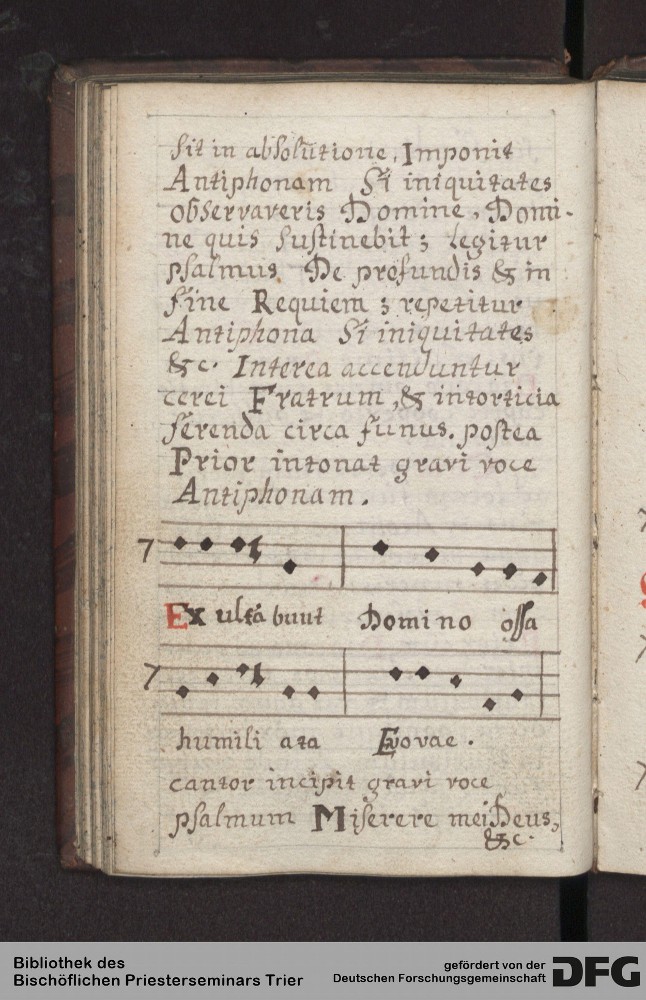 sit in absolutione, Imponit
Antiphonam Si iniquitates
observaveris Domine, Domi-
ne quis sustinebit; legitur
psalmus De profundis & in
fine Requiem; repetitur
Antiphona Si iniquitates
&c. Interea accenduntur
cerei Fratrum, & intorticia
ferenda circa funus. postea
Prior intonat gravi voce
Antiphonam.
Ex ultá bunt Domino ossa
humili ata Evovae.
cantor incipit gravi voce
psalmum Miserere mei Deus,
&c.
Bibliothek des
Bischöflichen Priesterseminars Trier
gefördert von der
Deutschen Forschungsgemeinschaft
DFG